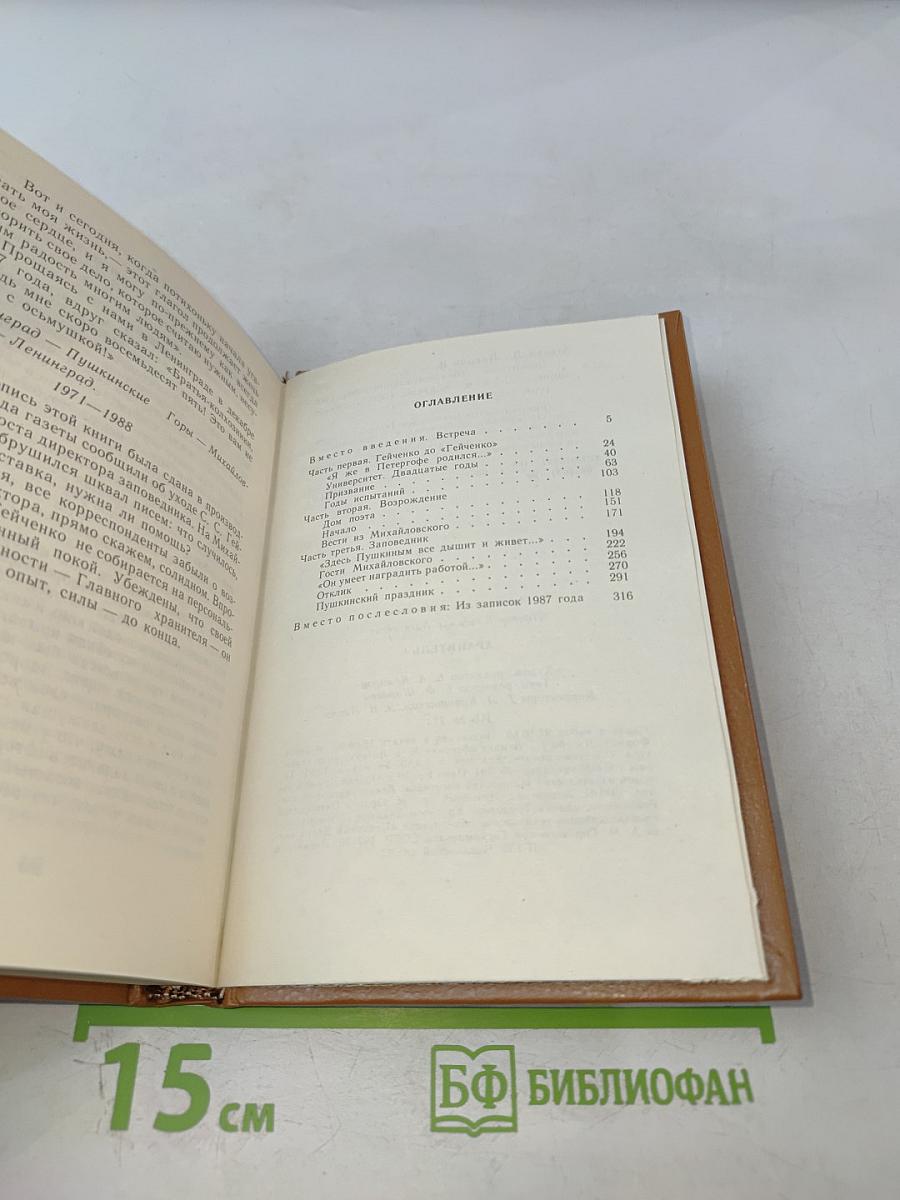 Вот и сегодня, когда потихоньку начала уга-
сать моя жизнь,— этот глагол продолжает жечь
ое сердце, и я могу по-прежнему, как всегда
орить свое дело, которое считаю нужным, несу-
им радость многим людям».
Прощаясь с нами в Ленинграде в декабре
7 года, вдруг сказал: «Братья-колхозники,
дь мне скоро восемьдесят пять! Это вам не
с осьмушкой!»
нград — Пушкинские Горы — Михайлов-
— Ленинград.
1971—1988
пись этой книги была сдана в производ-
да газеты сообщили об уходе С. С. Гей-
оста директора заповедника. На Михай-
брушился шквал писем: что случилось,
ставка, нужна ли помощь?
я, все корреспонденты забыли о воз-
ктора, прямо скажем, солидном. Впро-
Гейченко не собирается на персональ-
нный покой. Убеждены, что своей
ности — Главного хранителя — он
опыт, силы — до конца.
ОГЛАВЛЕНИЕ
Вместо введения. Встреча . . . . . . . 5
Часть первая. Гейченко до «Гейченко»
«Я же в Петергофе родился...» . . . . . . 24
Университет. Двадцатые годы . . . . . . 40
Призвание . . . . . . . . . . . 63
Годы испытаний . . . . . . . . . . 103
Часть вторая. Возрождение
Дом поэта . . . . . . . . . . . 118
Начало . . . . . . . . . . . . 151
Вести из Михайловского . . . . . . . . 171
Часть третья. Заповедник
«Здесь Пушкиным все дышит и живет...» . . . 194
Гости Михайловского . . . . . . . . 222
«Он умеет наградить работой...» . . . . . . 256
Отклик . . . . . . . . . . . . 270
Пушкинский праздник . . . . . . . . 291
Вместо послесловия: Из записок 1987 года 316
15 см
БФ БИБЛИОФАН